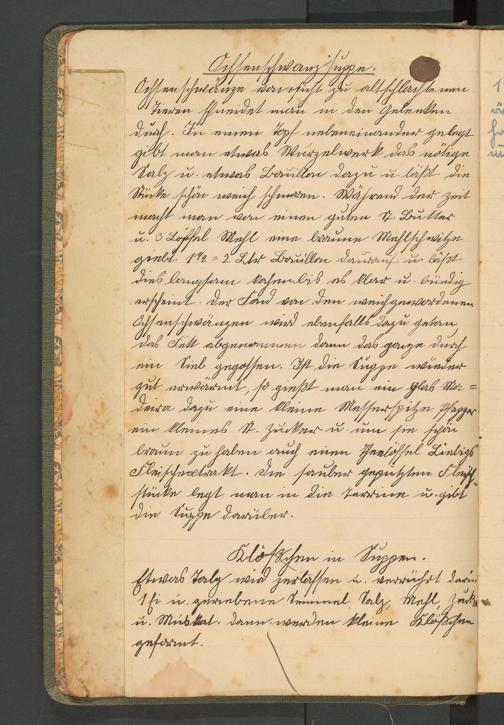 Ochsenschwanzsuppe.
Ochsenschwänze von nicht zu altschlachtenen
Tieren schneidet man in den Gelenken
durch. In einem Topf nebeneinander gelegt
gibt man etwas Wurzelwerk das nötige
Salz u. etwas Bouillon dazu u. läßt die
Stücke schön weich schmoren. Während der Zeit
macht man von einem guten St. Butter
u. 3 Löffel Mehl eine braune Mehlschwitze
gießt 1½ = 2 Ltr Bouillon darauf u. läßt
dies langsam kochen bis es klar u. bündig
erscheint. Der Fond von den weichgewordenen
Ochsenschwänzen wird ebenfalls dazu getan,
das Fett abgenommen dann das ganze durch
ein Sieb gegossen. Ist die Suppe wieder
gut erwärmt, so gießt man ein Glas Ma=
deira dazu eine kleine Messerspitze Pfeffer
ein kleines St. Zucker u. um sie schön
braun zu haben auch einen Theelöffel Liebigs
Fleischextrakt. Die sauber geputzten Fleisch-
stücke legt man in die Terrine u. gibt
die Suppe darüber.
Klößchen in Suppen.
Etwas Talg wird zerlassen u. verrührt darin
1 Ei u. geriebene Semmel, Salz, Mehl, Zucker
u. Muskat. dann werden kleine Klößchen
geformt.